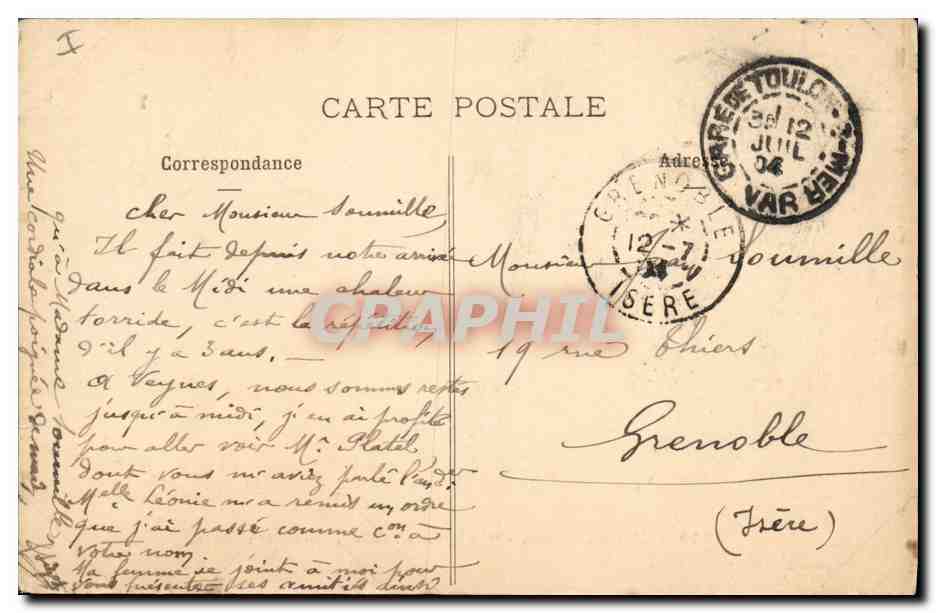 CARTE POSTALE
Correspondance
Adresse
GARE DE TOULON-S-MER
12
JUIL
04
VAR
GRENOBLE
12-7
04
ISERE
cher Monsieur Soumille,
Il fait depuis notre arrivée
dans le Midi une chaleur
torride, c'est la répétition
d'il y a 3 ans. —
A Veynes, nous sommes restés
jusqu'à midi, j'en ai profité
pour aller voir Mr. Platel,
dont vous m'aviez parlé l'an der
Melle Léonie m'a remis un ordre
que j'ai passé comme con à
votre nom
Ma femme se joint à moi pour
vous présenter ses amitiés ainsi
qu'à Madame Soumille
Une cordiale poignée de main,
Monsieur Soumille
19 rue Thiers
Grenoble
(Isère)
CPAPHIL